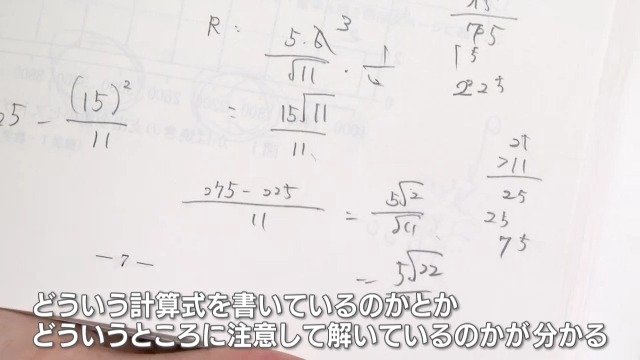 R =
5·6 3
√11 · 1
15
15
75
15
225
25 - (15)²
11
= 15√11
11
275-225
11
= 5√2
√11
= 5√22
25
×11
25
25
75
-7-
どういう計算式を書いているのかとか
どういうところに注意して解いているのかが分かる